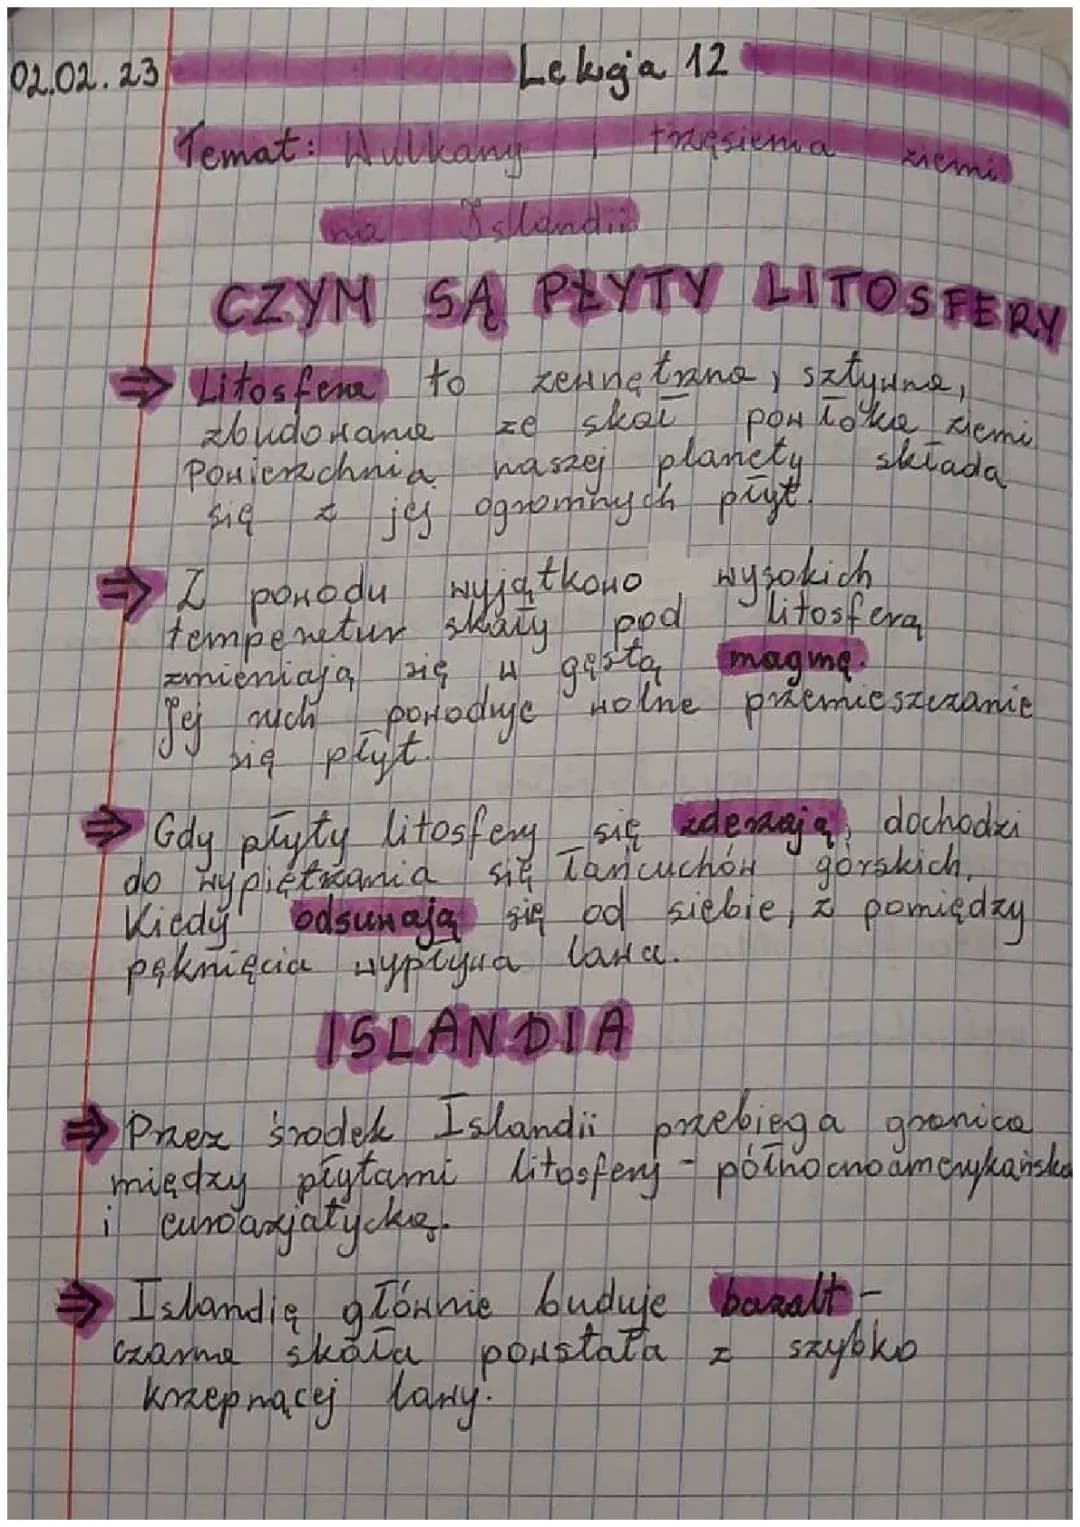 02.02.23 Lekcja 12
Temat: Wulkany i trzęsienia ziemi
na Islandii
CZYM SĄ PŁYTY LITOSFERY
⇒ Litosfera to zewnętrzna, sztywna,
zbudowana ze skał powłoka ziemi
Powierzchnia naszej planety składa
się z jej ogromnych płyt.
⇒ Z powodu wyjątkowo wysokich
temperatur skały pod litosferą
zmieniają się w gęstą magmę.
Jej ruch powoduje wolne przemieszczanie
się płyt.
⇒ Gdy płyty litosfery się zderzają, dochodzi
do wypiętrzania się łańcuchów górskich.
Kiedy odsuwają się od siebie, z pomiędzy
pęknięcia wypływa lawa.
ISLANDIA
⇒ Przez środek Islandii przebiega granica
między płytami litosfery - północnoamerykańską
i euroazjatycką.
⇒ Islandię głównie buduje bazalt -
czarna skała powstała z szybko
krzepnącej lawy.